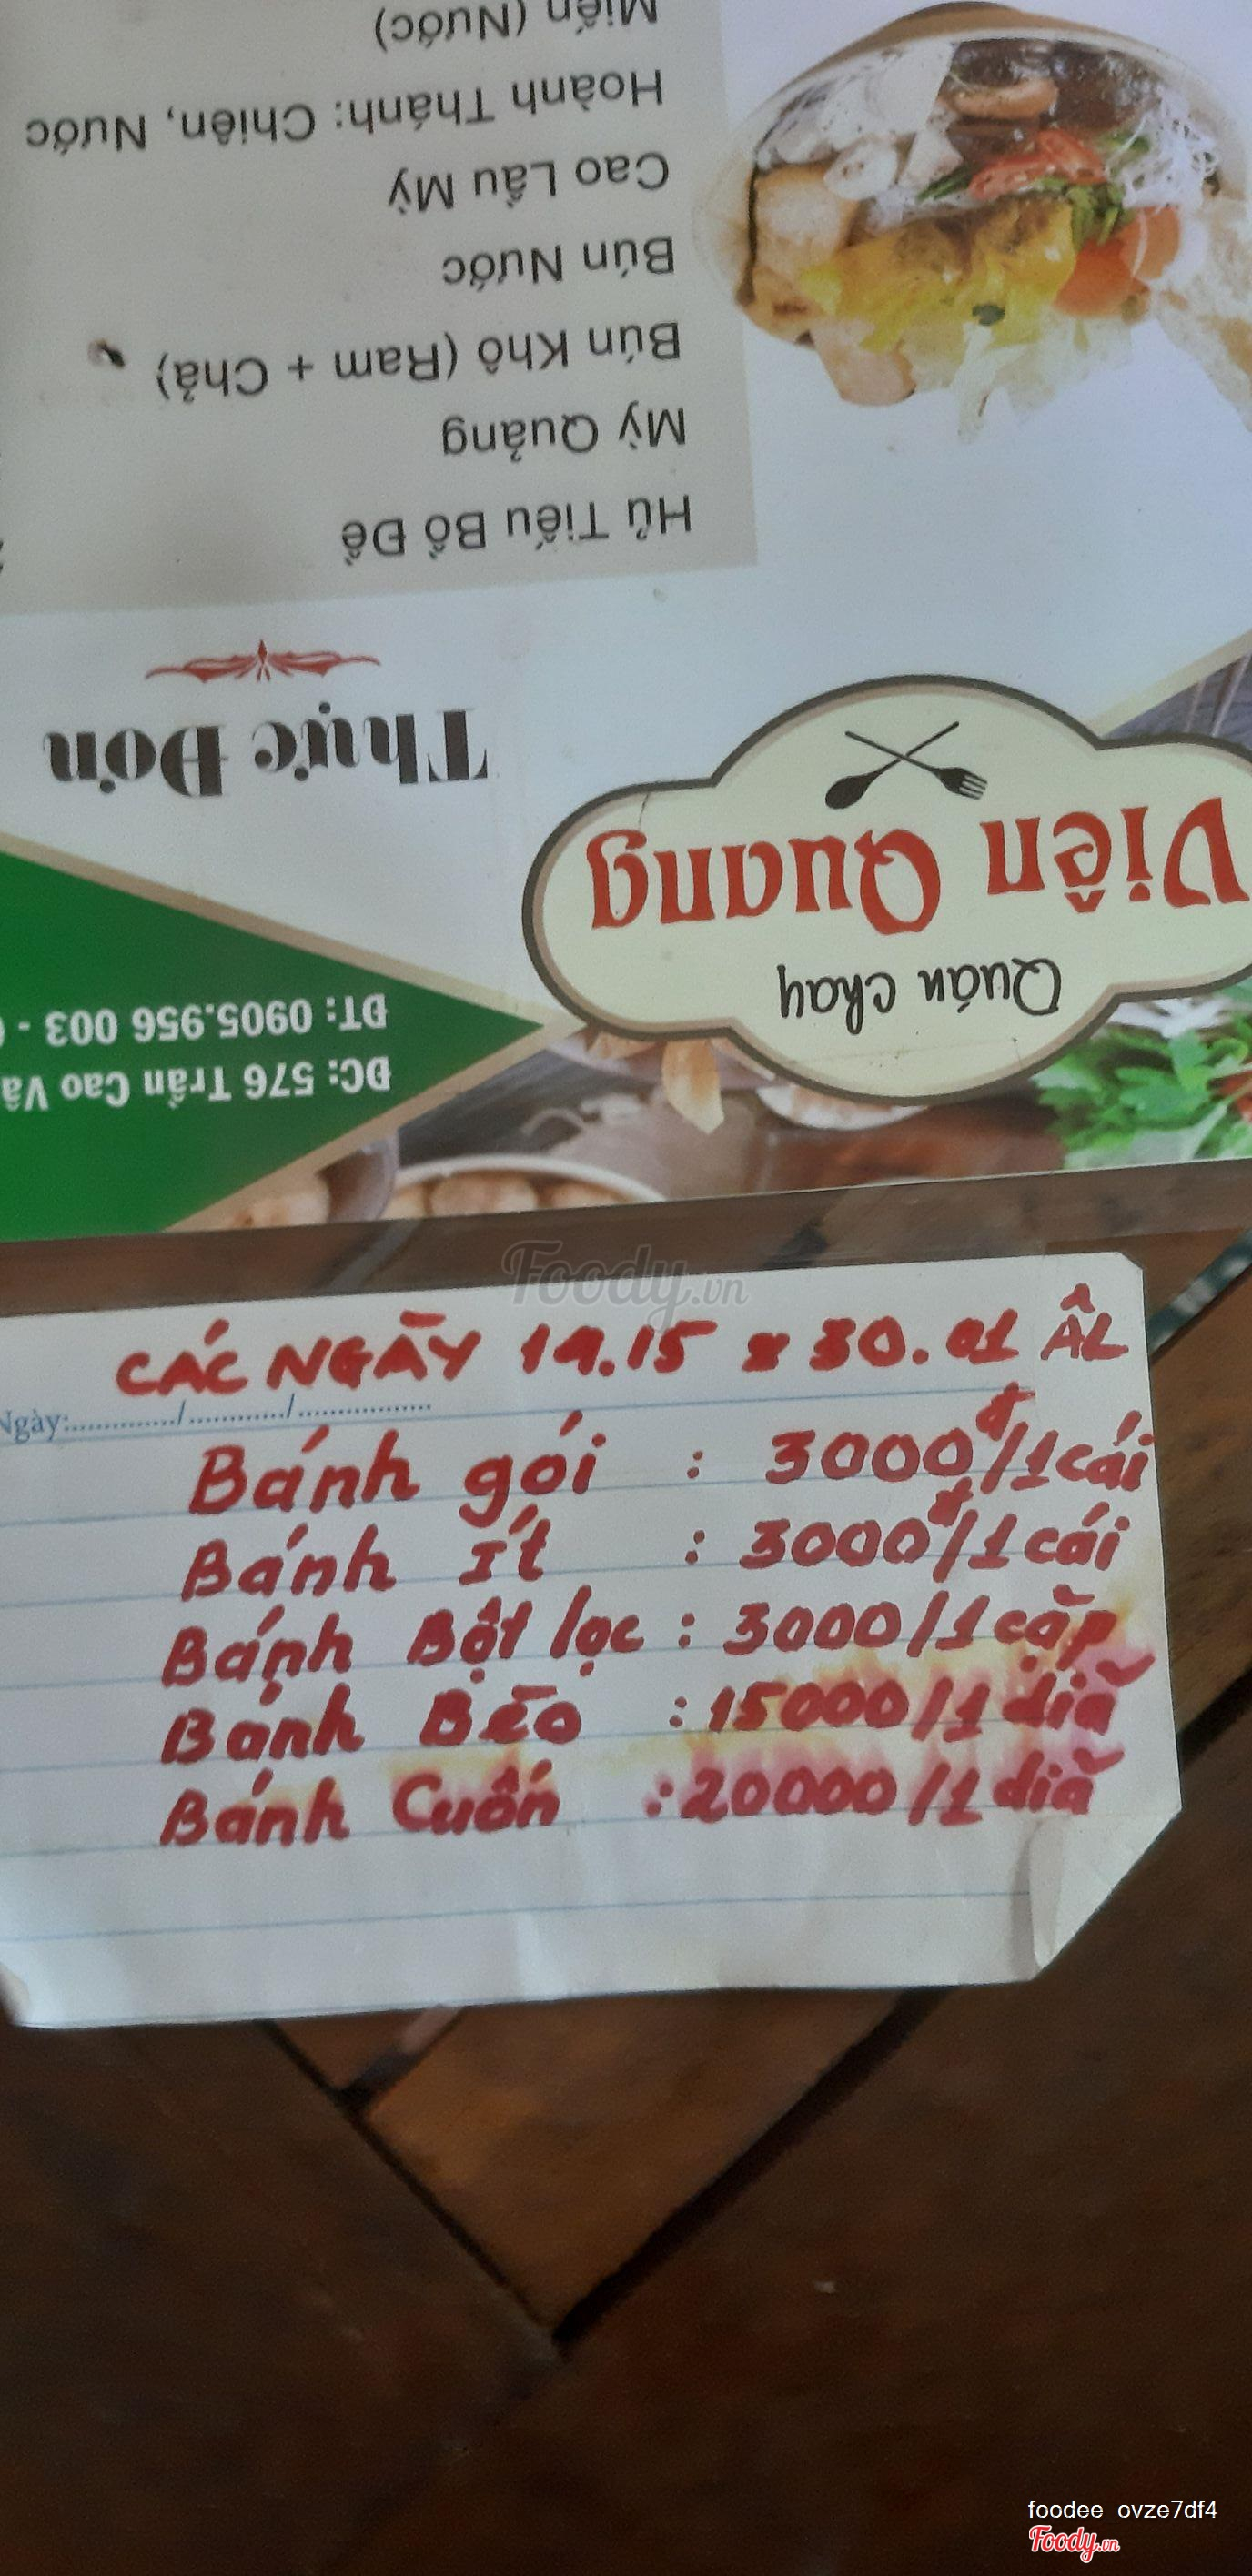 Quán chay
Viên Quang
ĐC: 576 Trần Cao Vâ
ĐT: 0905.956 003 -
Thực Đơn
Hủ Tiếu Bồ Đề
Mỳ Quảng
Bún Khô (Ram + Chả)
Bún Nước
Cao Lầu Mỳ
Hoành Thánh: Chiên, Nước
Miến (Nước)
Foody.vn
CÁC NGÀY 14.15 & 30.01 ÂL
Ngày:............./............./.................
Bánh gói : 3000đ/1 cái
Bánh ít : 3000đ/1 cái
Bánh Bột lọc : 3000/1 cặp
Bánh Bèo : 15000/1 diã
Bánh Cuốn : 20000/1 diã
foodee_ovze7df4
Foody.vn